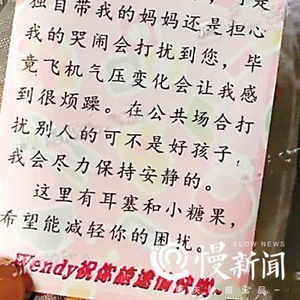 独自带我的妈妈还是担心
我的哭闹会打扰到您，毕
竟飞机气压变化会让我感
到很烦躁。在公共场合打
扰别人的可不是好孩子，
我会尽力保持安静的。
这里有耳塞和小糖果，
希望能减轻你的困扰。
Wendy祝你旅途愉快
慢新闻
SLOW NEWS